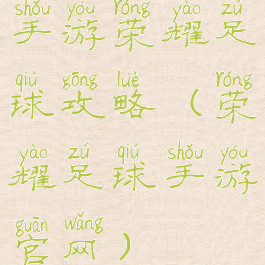 shǒu yóu róng yào zú
手游荣耀足
qiú gōng lüè róng
球攻略（荣
yào zú qiú shǒu yóu
耀足球手游
guān wǎng
官网）